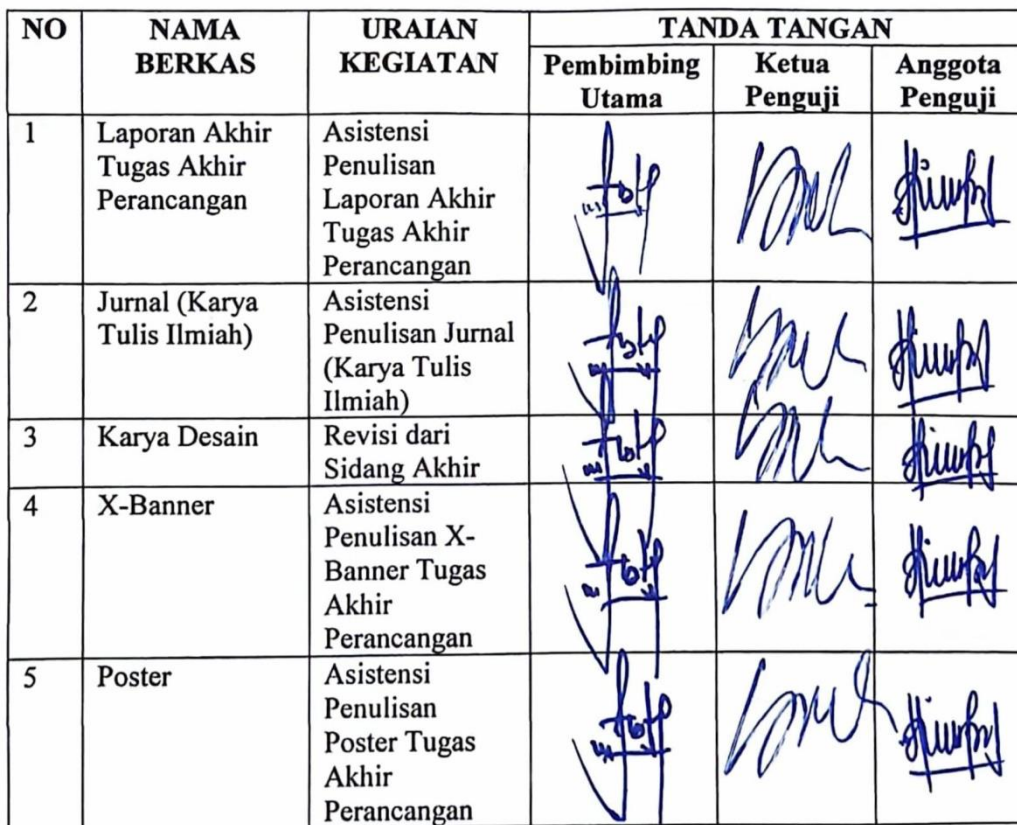 NO
NAMA
BERKAS
URAIAN
KEGIATAN
TANDA TANGAN
Pembimbing
Utama
Ketua
Penguji
Anggota
Penguji
1
Laporan Akhir
Tugas Akhir
Perancangan
Asistensi
Penulisan
Laporan Akhir
Tugas Akhir
Perancangan
2
Jurnal (Karya
Tulis Ilmiah)
Asistensi
Penulisan Jurnal
(Karya Tulis
Ilmiah)
3
Karya Desain
Revisi dari
Sidang Akhir
4
X-Banner
Asistensi
Penulisan X-
Banner Tugas
Akhir
Perancangan
5
Poster
Asistensi
Penulisan
Poster Tugas
Akhir
Perancangan